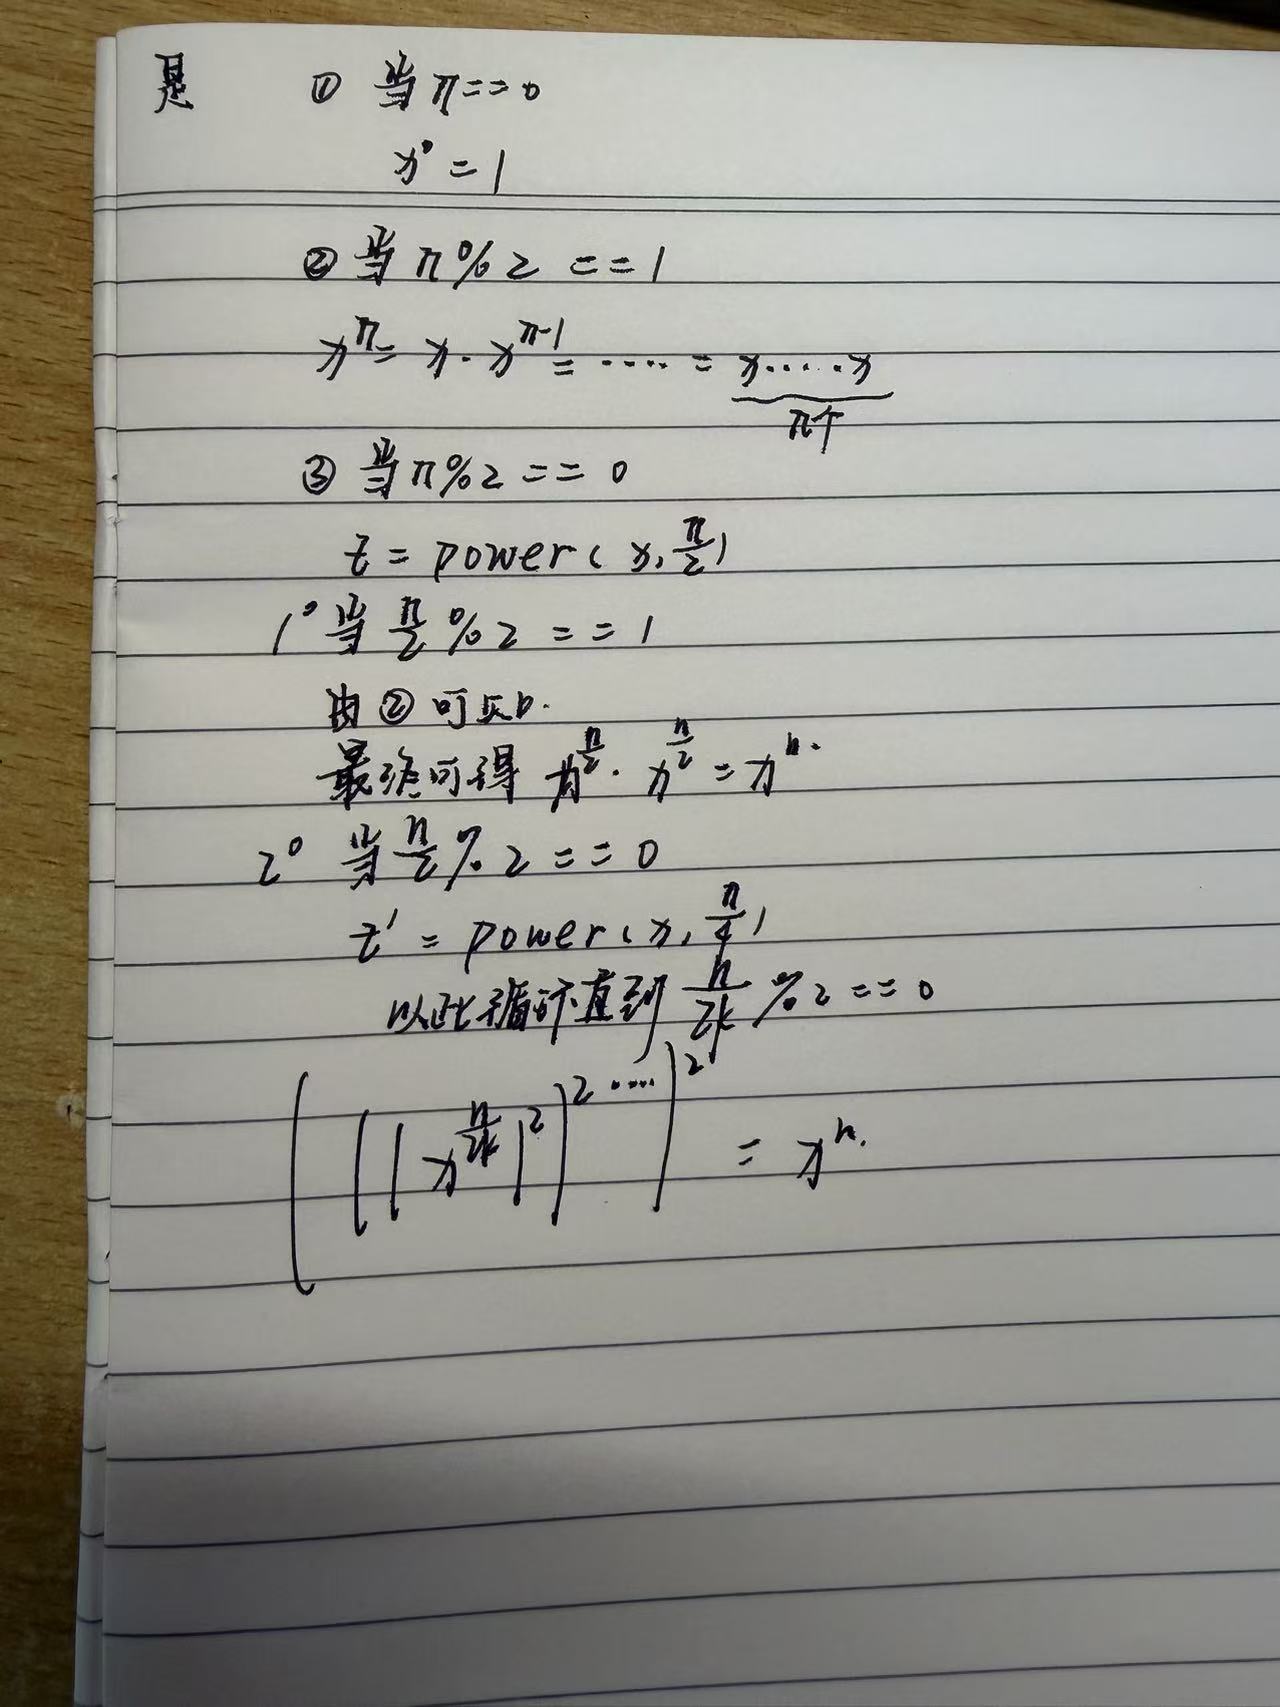 是 ① 当 n==0
x⁰ = 1
② 当 n%2 ==1
xⁿ = x·xⁿ⁻¹ = ····· = x·····x
n个
③ 当 n%2 == 0
t = power(x, n/2)
1° 当 n/2 %2 ==1
由②可知.
最终可得 x^(n/2) · x^(n/2) = xⁿ.
2° 当 n/2 %2 == 0
t' = power(x, n/4)
以此循环直到 n/2k %2 == 0
(((x^(n/2k))²)²····)² = xⁿ.